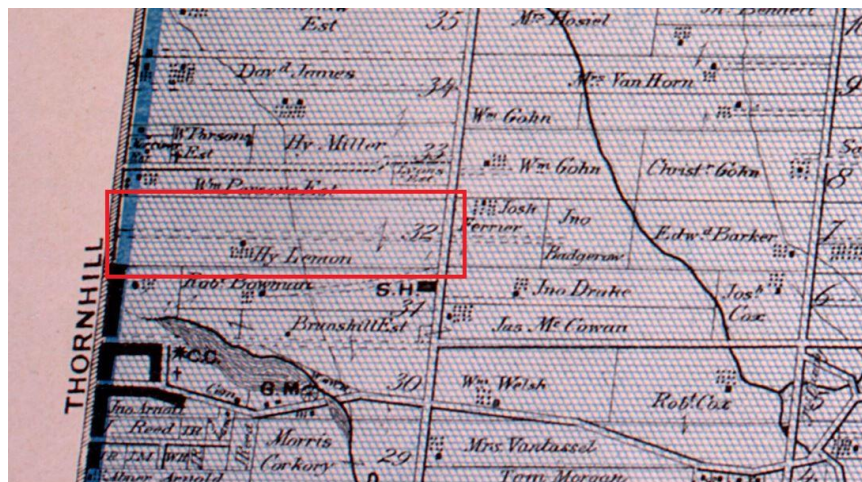 Est
35
Mrs Hosiel
Jn Bennett
Davd James
34
Mrs Van Horn
9
Wm Gohn
W Parsons
Est
Hy Miller
33
Wm Gohn
Christr Gohn
8
Wm Parsons Est
32
Josh
Ferrier
Jno
Badgerow
Edwd Barker
7
Hy Lemon
THORNHILL
Robt Bowman
S.H
31
Jno Drake
Josh
Cox
6
Brunskill Est
Jas Mc Cowan
C.C.
G.M
30
Wm Welsh
Robt Cox
5
Jno Arnold
J Reed
JR
J Reed
Morris
Corkory
29
Mrs. Vantassel
JR
JM
WR
Abner Arnold
Tom Morgan
4